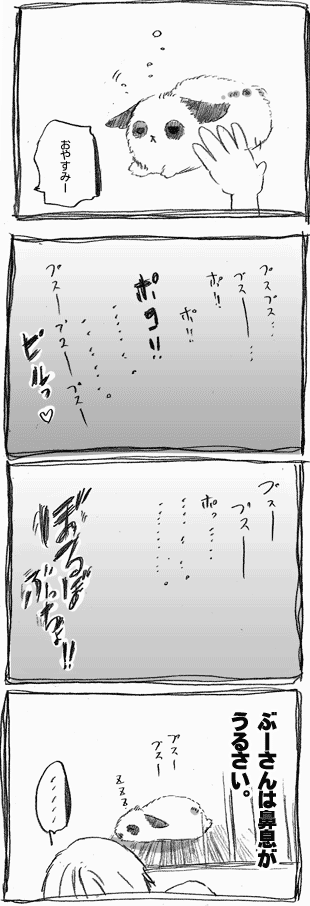 おやすみー
プスプス…
プスー…
ポ!!
ポ!!
ポコ!!
プスー
プスー
プスー
ピルっ♡
プスー
プスー
ポっ……
ぼるぼ
ぶっちょ!!
ぶーさんは鼻息が
うるさい。
プスー
プスー
zzzz
……